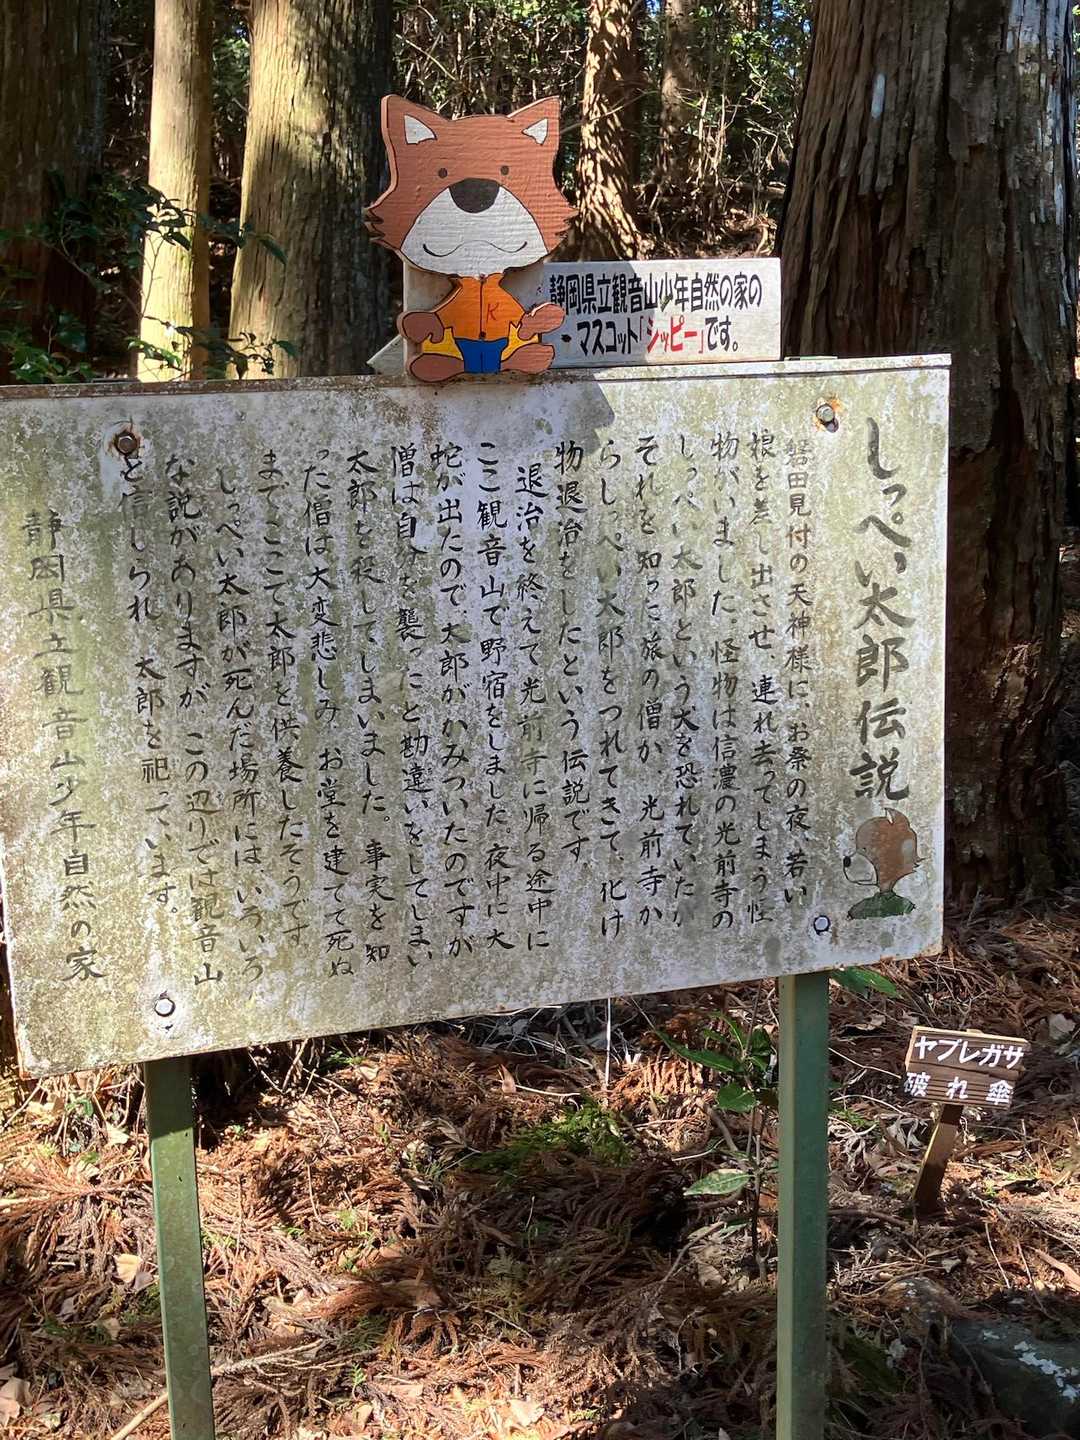 静岡県立観音山少年自然の家の
マスコット「シッピー」です。
K
しっぺい太郎伝説
磐田見付の天神様に、お祭の夜、若い
娘を差し出させ、連れ去ってしまう怪
物がいました。怪物は信濃の光前寺の
しっぺい太郎という犬を恐れていたが
それを知った旅の僧が、光前寺か
らしっぺい太郎をつれてきて、化け
物退治をしたという伝説です。
退治を終えて光前寺に帰る途中に
ここ観音山で野宿をしました。夜中に大
蛇が出たので、太郎がかみついたのですが
僧は自分を襲ったと勘違いをしてしまい
太郎を殺してしまいました。事実を知
った僧は大変悲しみ、お堂を建てて死ぬ
までここで太郎を供養したそうです
しっぺい太郎が死んだ場所には、いろいろ
な説がありますが、この辺りでは観音山
と信じられ、太郎を祀っています。
静岡県立観音山少年自然の家
ヤブレガサ
破れ傘